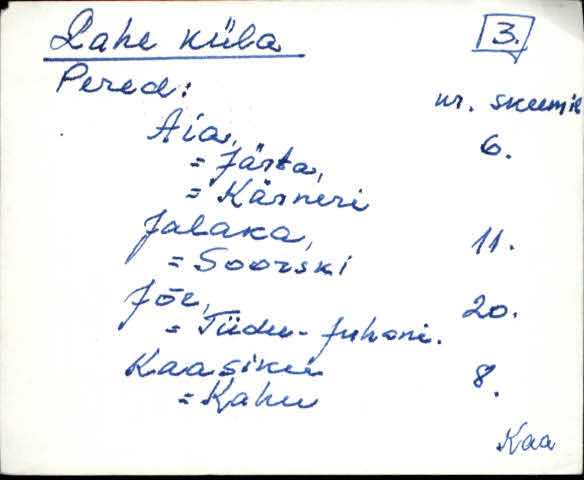 Lahe küla 3.
Pered: nr. skeemil
Aia, 6.
= Järta,
= Kärneri
Jalaka, 11.
= Soorski
Jõe, 20.
= Tüdu-Juhani.
Kaasiku 8.
= Kahu
Kaa